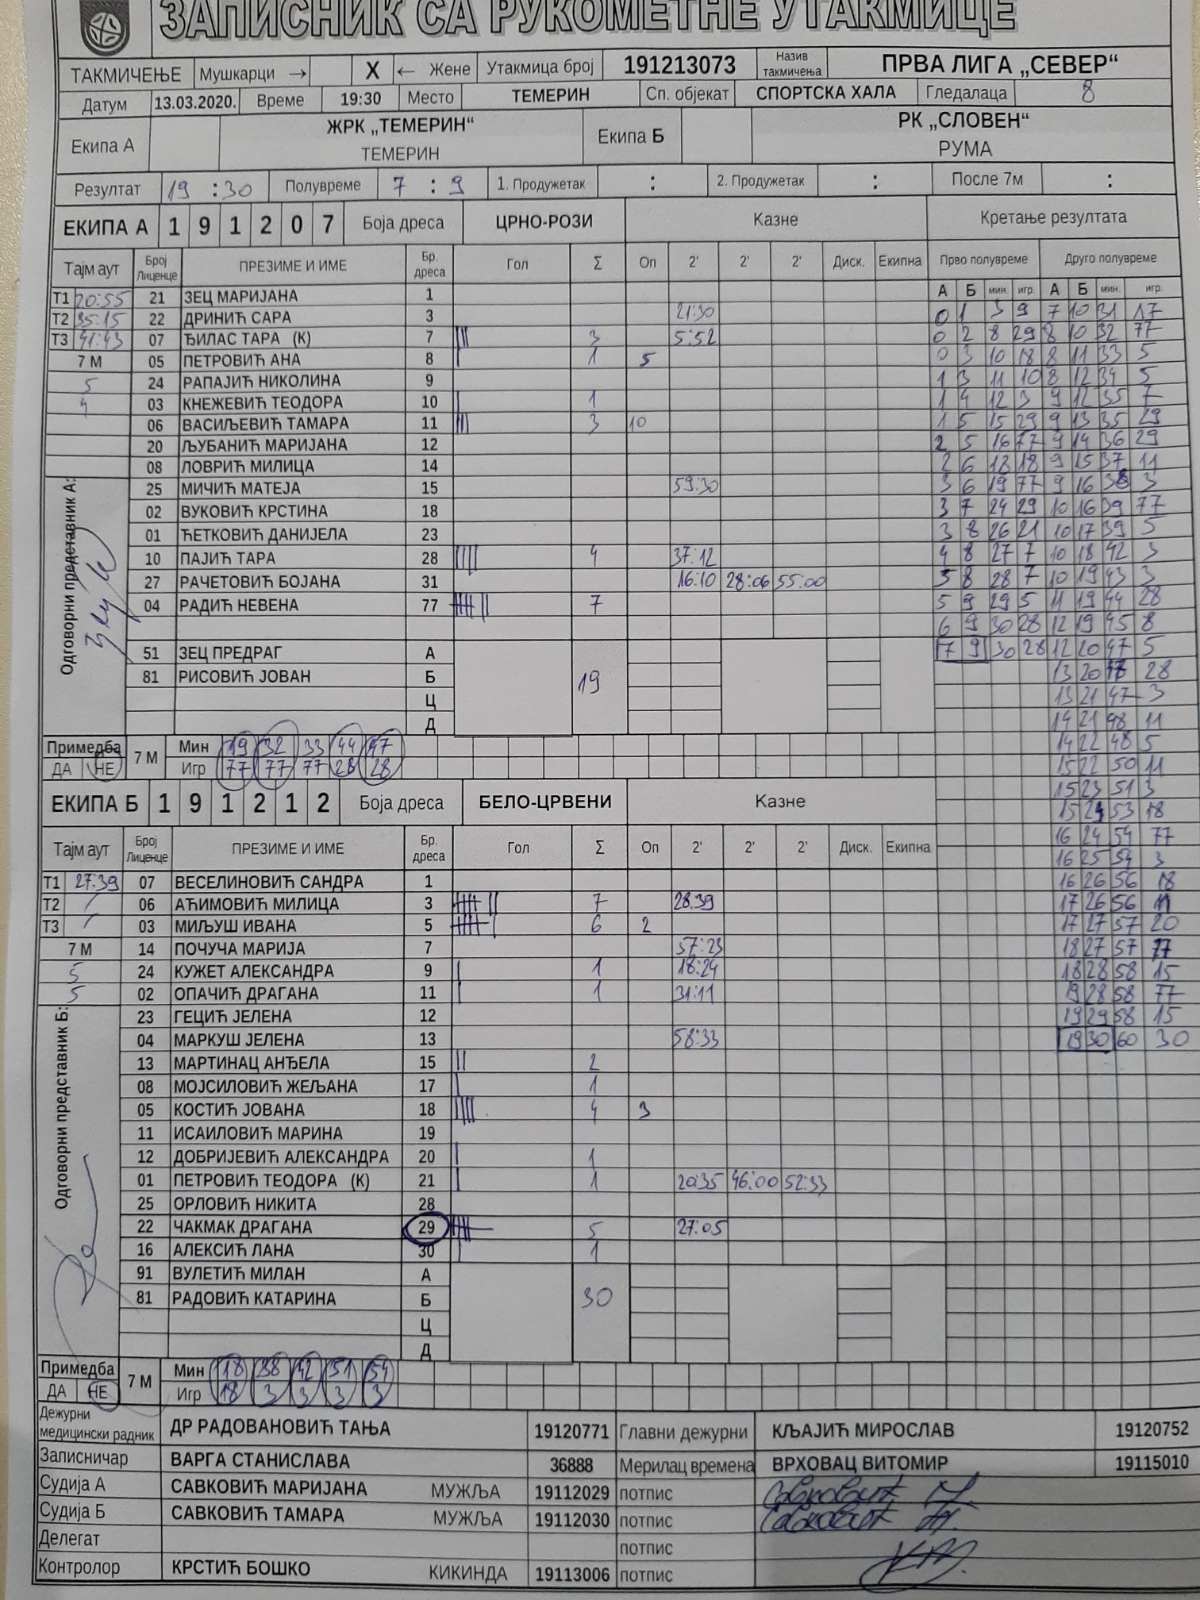 ЗАПИСНИК СА РУКОМЕТНЕ УТАКМИЦЕ
ТАКМИЧЕЊЕ Мушкарци → X ← Жене Утакмица број 191213073 Назив такмичења ПРВА ЛИГА „СЕВЕР“
Датум 13.03.2020. Време 19:30 Место ТЕМЕРИН Сп. објекат СПОРТСКА ХАЛА Гледалаца 8
Екипа А ЖРК „ТЕМЕРИН“ ТЕМЕРИН Екипа Б РК „СЛОВЕН“ РУМА
Резултат 19 : 30 Полувреме 7 : 9 1. Продужетак : 2. Продужетак : После 7м :
ЕКИПА А 1 9 1 2 0 7 Боја дреса ЦРНО-РОЗИ Казне Кретање резултата
Тајм аут Број Лиценце ПРЕЗИМЕ И ИМЕ Бр. дреса Гол Σ Оп 2' 2' 2' Диск. Екипна Прво полувреме Друго полувреме
А Б мин. игр. А Б мин. игр.
Т1 20:55 21 ЗЕЦ МАРИЈАНА 1 0 1 3 9 7 10 31 17
Т2 35:15 22 ДРИНИЋ САРА 3 21:30 0 2 8 29 8 10 32 77
Т3 41:43 07 ЂИЛАС ТАРА (К) 7 ||| 3 5:52 0 3 10 18 8 11 33 5
7 М 05 ПЕТРОВИЋ АНА 8 | 1 5 1 3 11 10 8 12 34 5
5 24 РАПАЈИЋ НИКОЛИНА 9 1 4 12 3 9 12 35 7
4 03 КНЕЖЕВИЋ ТЕОДОРА 10 | 1 1 5 15 29 9 13 35 29
06 ВАСИЉЕВИЋ ТАМАРА 11 ||| 3 10 2 5 16 77 9 14 36 29
20 ЉУБАНИЋ МАРИЈАНА 12 2 6 18 18 9 15 37 11
08 ЛОВРИЋ МИЛИЦА 14 3 6 19 77 9 16 38 3
25 МИЧИЋ МАТЕЈА 15 59:30 3 7 24 29 10 16 39 77
02 ВУКОВИЋ КРСТИНА 18 3 8 26 21 10 17 39 5
01 ЋЕТКОВИЋ ДАНИЈЕЛА 23 4 8 27 7 10 18 42 3
10 ПАЈИЋ ТАРА 28 |||| 4 37:12 5 8 28 7 10 19 43 3
27 РАЧЕТОВИЋ БОЈАНА 31 16:10 28:06 55:00 5 9 29 5 11 19 44 28
04 РАДИЋ НЕВЕНА 77 7 6 9 30 28 12 19 45 8
7 9 30 28 12 20 47 5
Одговорни представник А:
51 ЗЕЦ ПРЕДРАГ А 13 20 28
81 РИСОВИЋ ЈОВАН Б 19 13 21 47 3
Ц 14 21 48 11
Д 14 22 48 5
Примедба ДА НЕ 7 М Мин 19 32 33 44 47
Игр 77 77 77 28 28
15 22 50 11
15 23 51 3
15 24 53 18
16 24 54 77
16 25 54 3
16 26 56 18
17 26 56 11
17 27 57 20
18 27 57
18 28 58 15
19 28 58 77
19 29 58 15
19 30 60 30
ЕКИПА Б 1 9 1 2 1 2 Боја дреса БЕЛО-ЦРВЕНИ Казне
Тајм аут Број Лиценце ПРЕЗИМЕ И ИМЕ Бр. дреса Гол Σ Оп 2' 2' 2' Диск. Екипна
Т1 27:39 07 ВЕСЕЛИНОВИЋ САНДРА 1
Т2 / 06 АЋИМОВИЋ МИЛИЦА 3 7 28:39
Т3 / 03 МИЉУШ ИВАНА 5 6 2
7 М 14 ПОЧУЧА МАРИЈА 7 57:23
5 24 КУЖЕТ АЛЕКСАНДРА 9 | 1 18:24
5 02 ОПАЧИЋ ДРАГАНА 11 | 1 31:11
23 ГЕЦИЋ ЈЕЛЕНА 12
04 МАРКУШ ЈЕЛЕНА 13 58:33
13 МАРТИНАЦ АНЂЕЛА 15 || 2
08 МОЈСИЛОВИЋ ЖЕЉАНА 17 | 1
05 КОСТИЋ ЈОВАНА 18 |||| 4 3
11 ИСАИЛОВИЋ МАРИНА 19
12 ДОБРИЈЕВИЋ АЛЕКСАНДРА 20 | 1
01 ПЕТРОВИЋ ТЕОДОРА (К) 21 | 1 20:35 46:00 52:33
25 ОРЛОВИЋ НИКИТА 28
22 ЧАКМАК ДРАГАНА 29 5 27:05
16 АЛЕКСИЋ ЛАНА 30 | 1
Одговорни представник Б:
91 ВУЛЕТИЋ МИЛАН А
81 РАДОВИЋ КАТАРИНА Б 30
Ц
Д
Примедба ДА НЕ 7 М Мин 18 38 42 51 54
Игр 18 3 3 3 3
Дежурни медицински радник ДР РАДОВАНОВИЋ ТАЊА 19120771 Главни дежурни КЉАЈИЋ МИРОСЛАВ 19120752
Записничар ВАРГА СТАНИСЛАВА 36888 Мерилац времена ВРХОВАЦ ВИТОМИР 19115010
Судија А САВКОВИЋ МАРИЈАНА МУЖЉА 19112029 потпис Савковић М.
Судија Б САВКОВИЋ ТАМАРА МУЖЉА 19112030 потпис Савковић Т.
Делегат потпис
Контролор КРСТИЋ БОШКО КИКИНДА 19113006 потпис